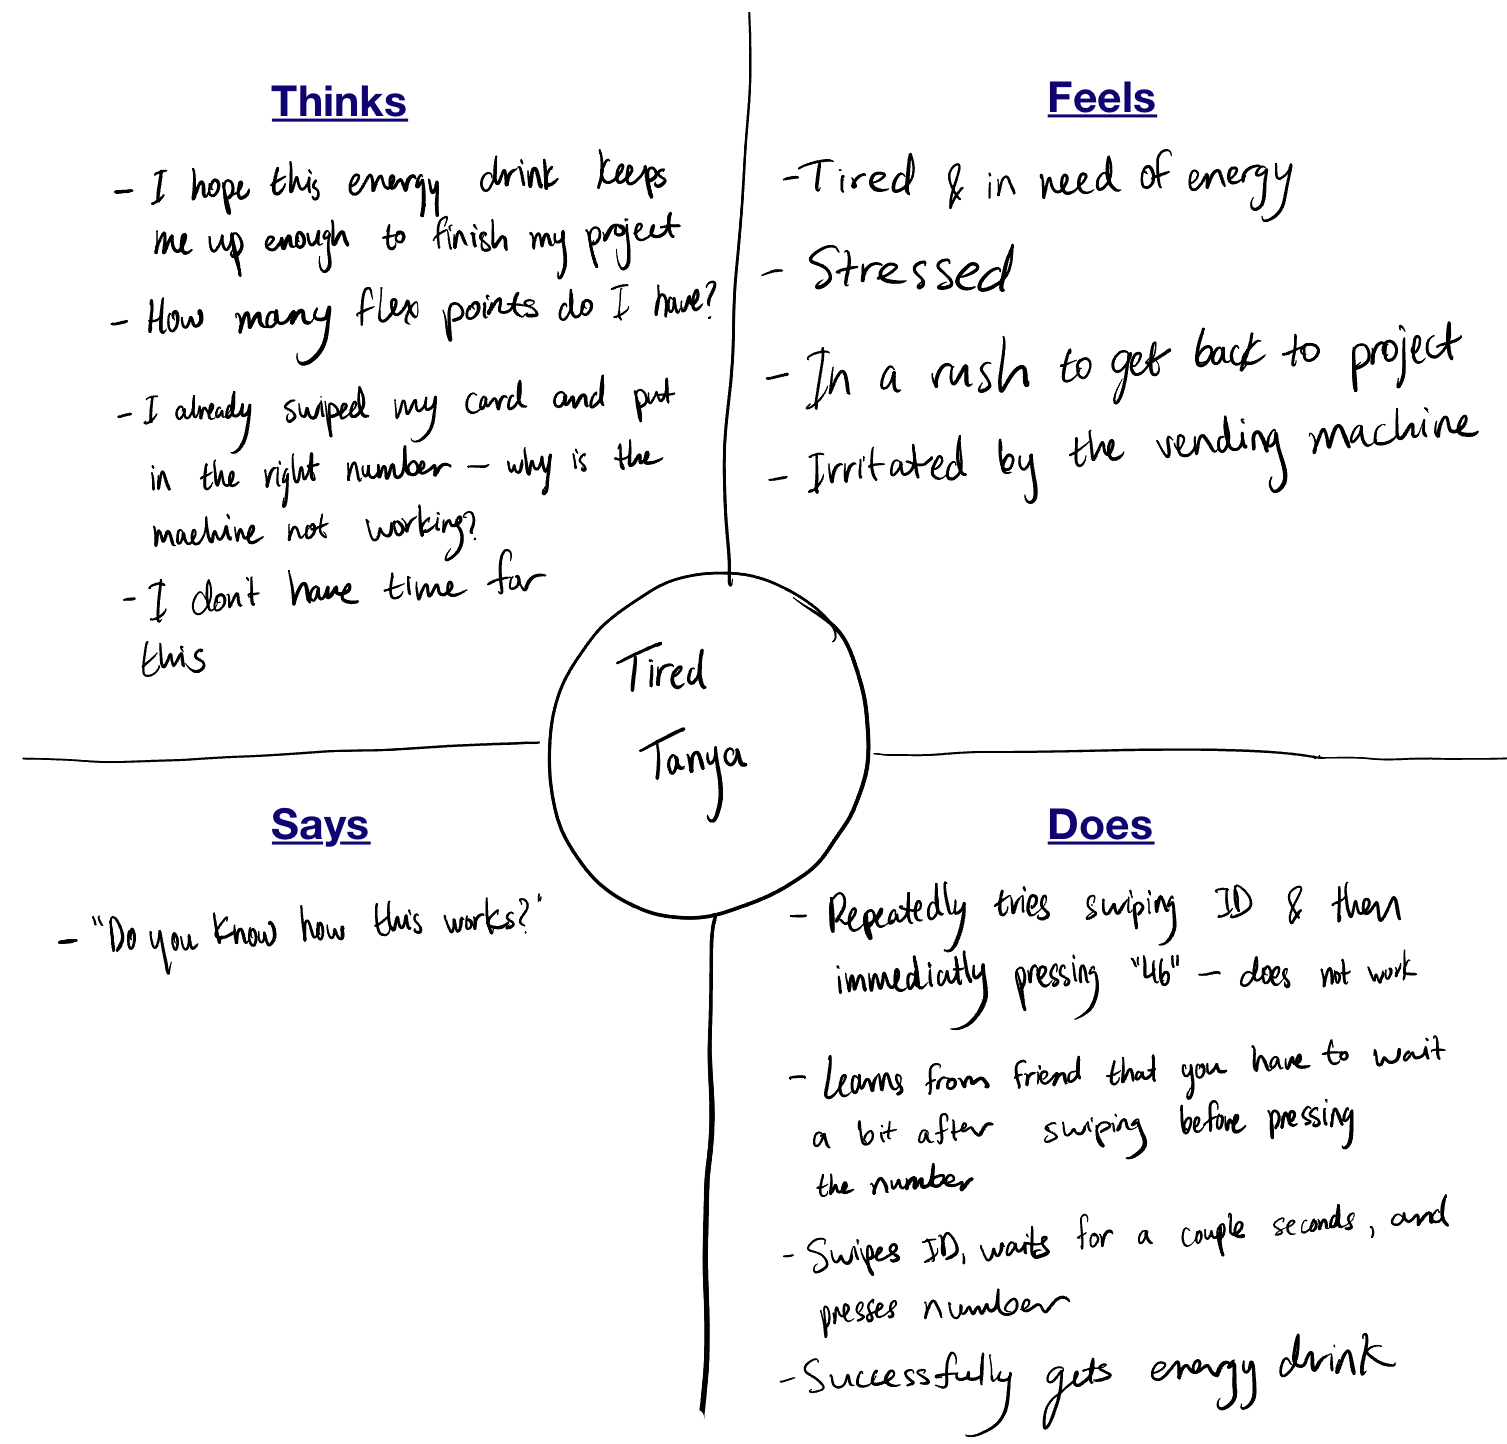 Thinks
- I hope this energy drink keeps
me up enough to finish my project
- How many flex points do I have?
- I already swiped my card and put
in the right number – why is the
machine not working?
- I don't have time for
this
Feels
- Tired & in need of energy
- Stressed
- In a rush to get back to project
- Irritated by the vending machine
Tired
Tanya
Says
- "Do you know how this works?"
Does
- Repeatedly tries swiping ID & then
immediatly pressing "46" – does not work
- Learns from friend that you have to wait
a bit after swiping before pressing
the number
- Swipes ID, waits for a couple seconds, and
presses number
- Successfully gets energy drink